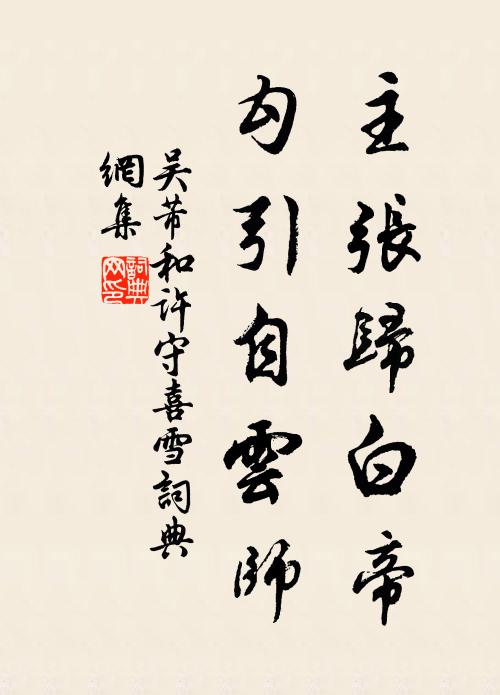 主張歸白帝
勾引自雲師
吴芾和許守喜雪詞典
網集
詞典網印